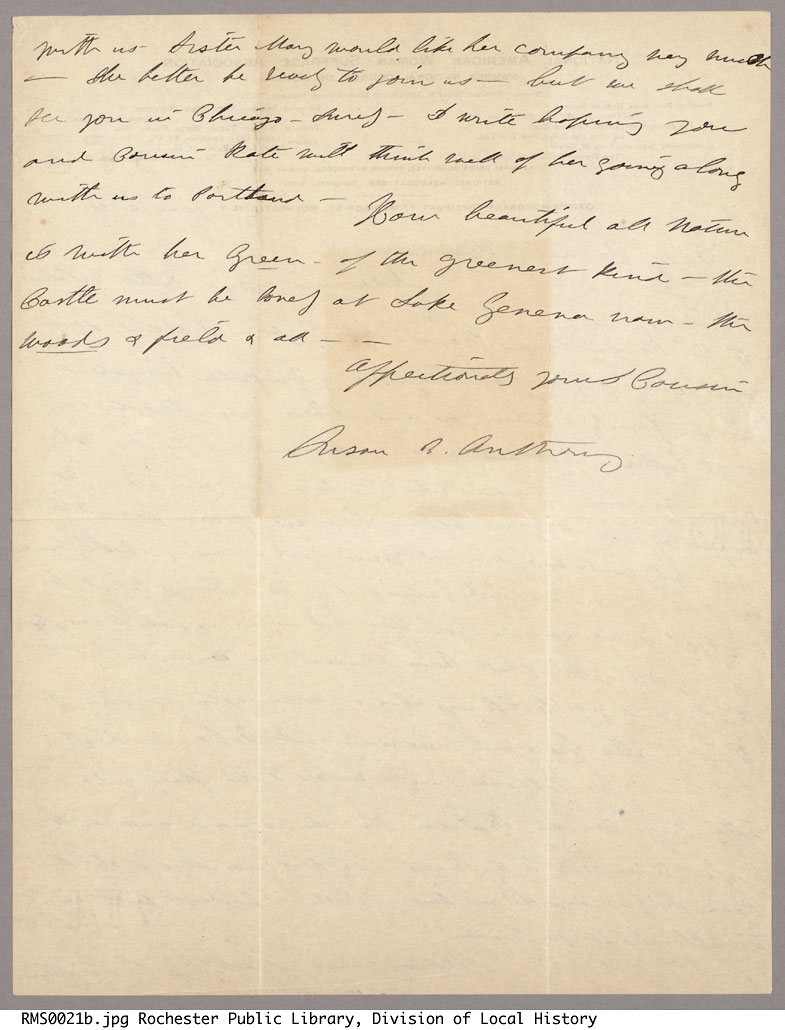 with us - Sister Mary would like her company very much
- She better be ready to join us - but we shall
see you in Chicago - surely - I write hoping you
and Cousin Kate will think well of her going along
with us to Portland - How beautiful all nature
is with her Green - of the greenest kind - the
Castle must be lovely at Lake Geneva now - the
woods & field & all - -
Affectionately yours Cousin
Susan B. Anthony
RMS0021b.jpg Rochester Public Library, Division of Local History